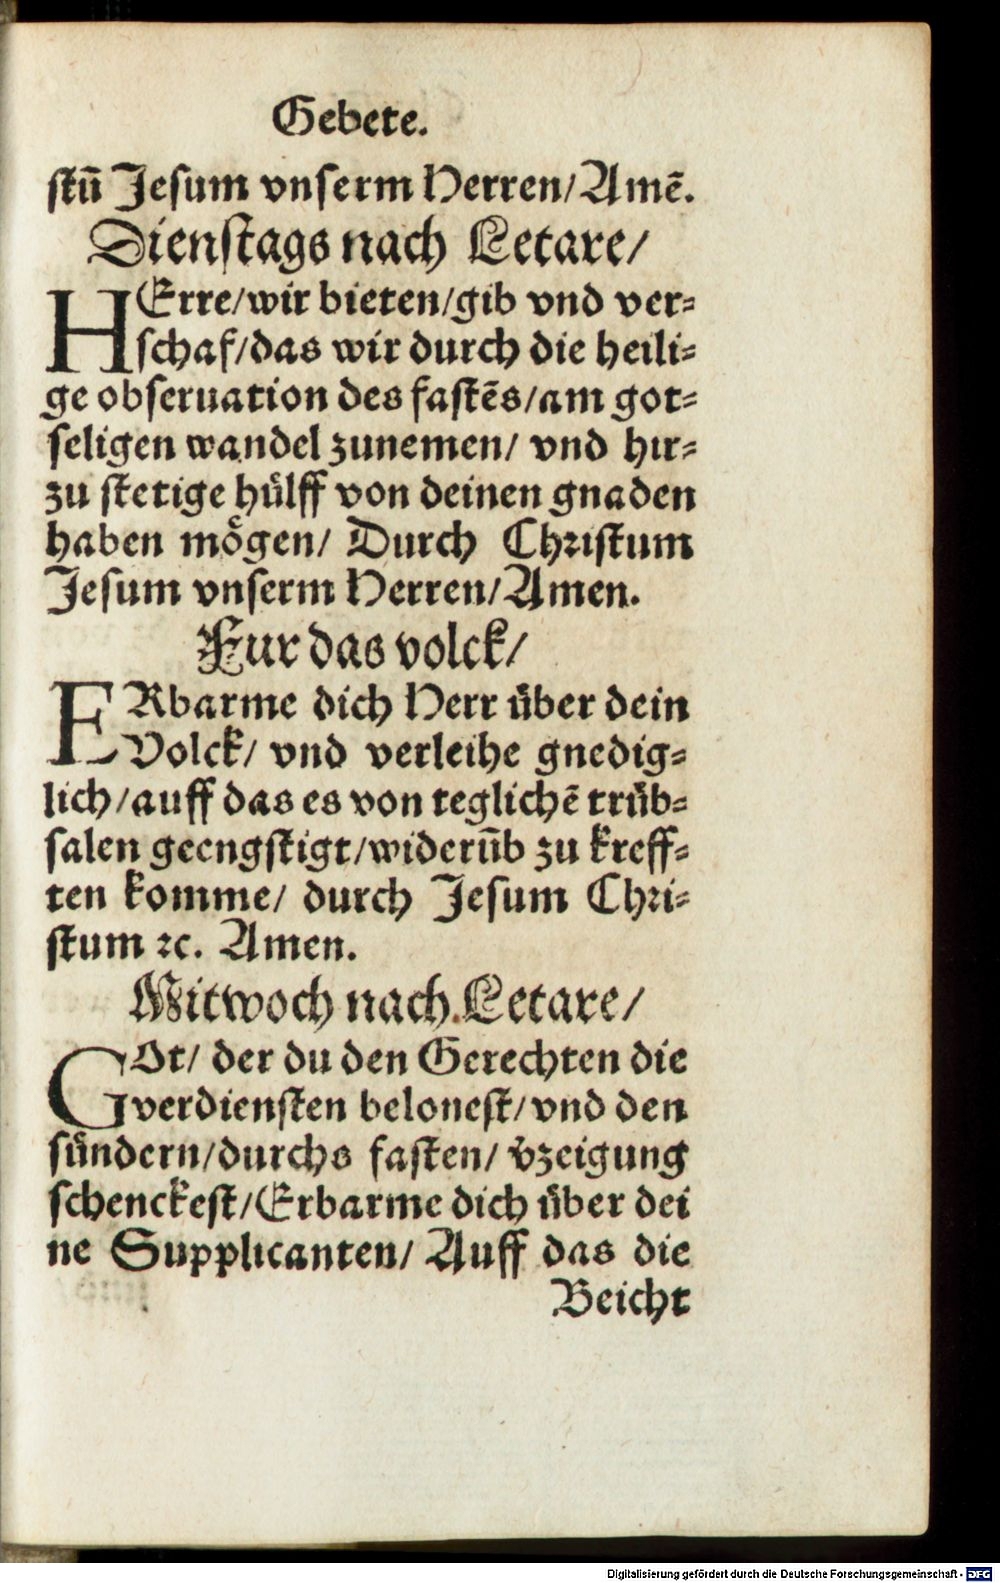 Gebete.
ſtū Jeſum vnſerm Herren/Amē.
Dienſtags nach Letare/
HErre/wir bieten/gib vnd ver⸗
ſchaf/das wir durch die heili⸗
ge obſeruation des faſtēs/am got⸗
ſeligen wandel zunemen/ vnd hir⸗
zu ſtetige hülff von deinen gnaden
haben mögen/ Durch Chriſtum
Jeſum vnſerm Herren/Amen.
Fur das volck/
ERbarme dich Herr über dein
Volck/ vnd verleihe gnedig⸗
lich/auff das es von teglichē trüb⸗
ſalen geengſtigt/widerūb zu kreff⸗
ten komme/ durch Jeſum Chri⸗
ſtum ꝛc. Amen.
Mitwoch nach Letare/
GOt/ der du den Gerechten die
verdienſten beloneſt/vnd den
ſündern/durchs faſten/ v̄zeigung
ſchenckeſt/Erbarme dich über dei
ne Supplicanten/ Auff das die
Beicht
Digitalisierung gefördert durch die Deutsche Forschungsgemeinschaft - DFG